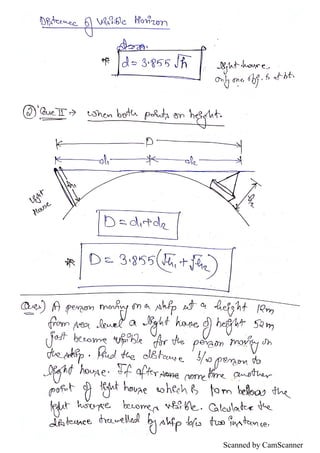 Distance of Visible Horizon
d = 3.855 √h
light house.
only one obj. is at ht.
② Case II → when both points on height.
D
d₁ d₂
light
house
h₁
h₂
D = d₁ + d₂
D = 3.855 (√h₁ + √h₂)
Ques) A person moving on a ship at a height 12m
from sea level a light house of height 52m
just become visible for the person moving on
the ship. Find the distance b/w person to
light house. If after some time another
point of light house which is 10m below the
light house becomes visible. Calculate the
distance travelled by ship b/w two instance.
Scanned by CamScanner